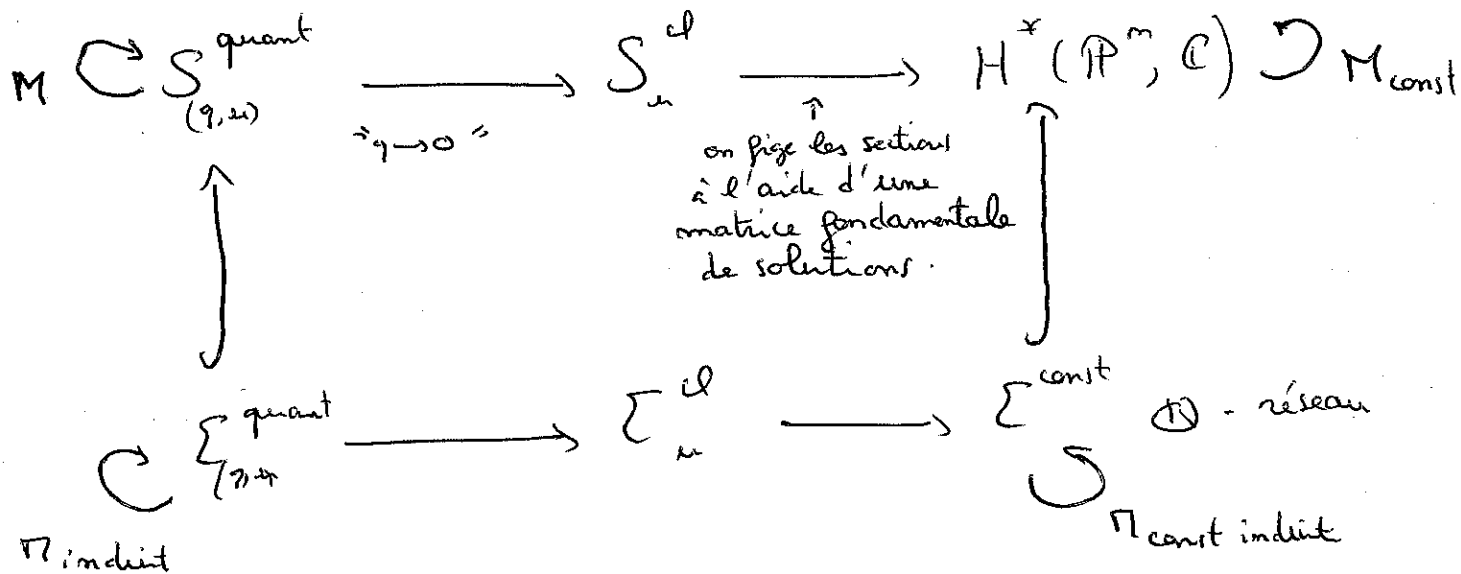 M S^{quant}_{(q,u)} → S^{cl}_u → H^*(ℙ^n, ℂ) M_{const}
"q → 0"
on fige les sections
à l'aide d'une
matrice fondamentale
de solutions.
Σ^{quant}_{q,u} → Σ^{cl}_u → Σ^{const} ℝ - réseau
M induit
M const induit